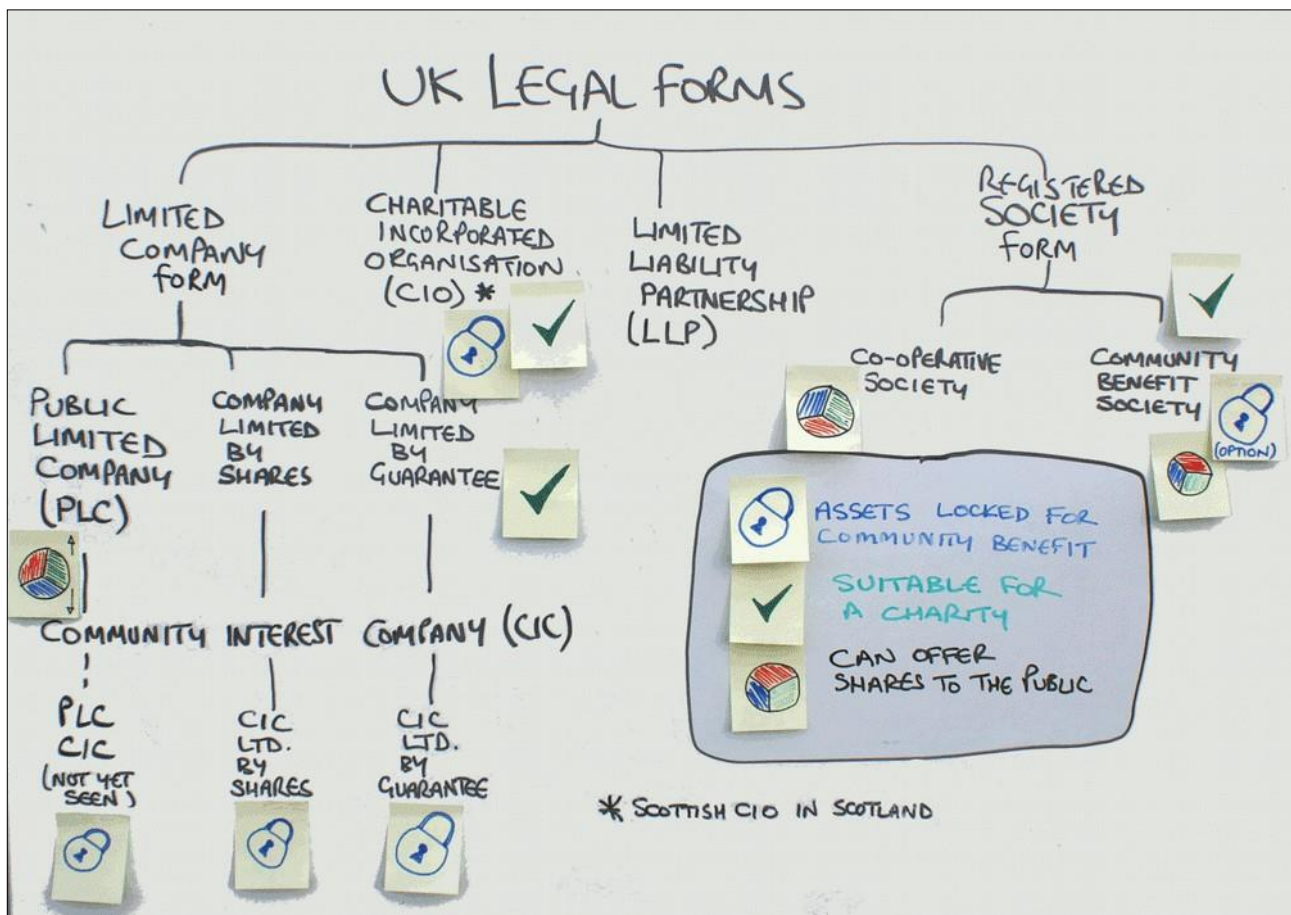 UK LEGAL FORMS
LIMITED
COMPANY
FORM
CHARITABLE
INCORPORATED
ORGANISATION
(CIO) *
LIMITED
LIABILITY
PARTNERSHIP
(LLP)
REGISTERED
SOCIETY
FORM
PUBLIC
LIMITED
COMPANY
(PLC)
COMPANY
LIMITED
BY
SHARES
COMPANY
LIMITED
BY
GUARANTEE
CO-OPERATIVE
SOCIETY
COMMUNITY
BENEFIT
SOCIETY
(OPTION)
COMMUNITY INTEREST COMPANY (CIC)
PLC
CIC
(NOT YET
SEEN)
CIC
LTD.
BY
SHARES
CIC
LTD.
BY
GUARANTEE
ASSETS LOCKED FOR
COMMUNITY BENEFIT
SUITABLE FOR
A CHARITY
CAN OFFER
SHARES TO THE PUBLIC
* SCOTTISH CIO IN SCOTLAND